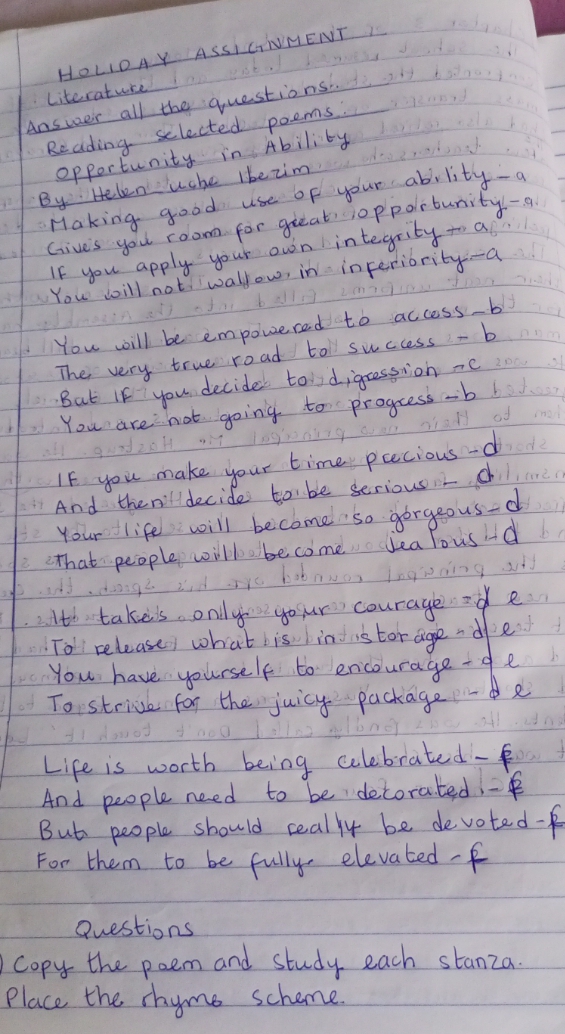 HOLIDAY ASSIGNMENT
Literature
Answer all the questions.
Reading selected poems.
Opportunity in Ability
By Helen-uche Ibezim
Making good use of your ability - a
Gives you room for great opportunity - a
If you apply your own integrity - a
You will not wallow in inferiority - a
You will be empowered to access - b
The very true road to success - b
But IF you decide to digression - c
You are not going to progress - b
IF you make your time precious - d
And then decide to be serious - d
Your life will become so gorgeous - d
That people will become jealous - d
It takes only your courage - d e
To release what is in storage - d e
You have yourself to encourage - d e
To strive for the juicy package - d e
Life is worth being celebrated - f
And people need to be decorated - f
But people should really be devoted - f
For them to be fully elevated - f
Questions
) Copy the poem and study each stanza.
Place the rhyme scheme.